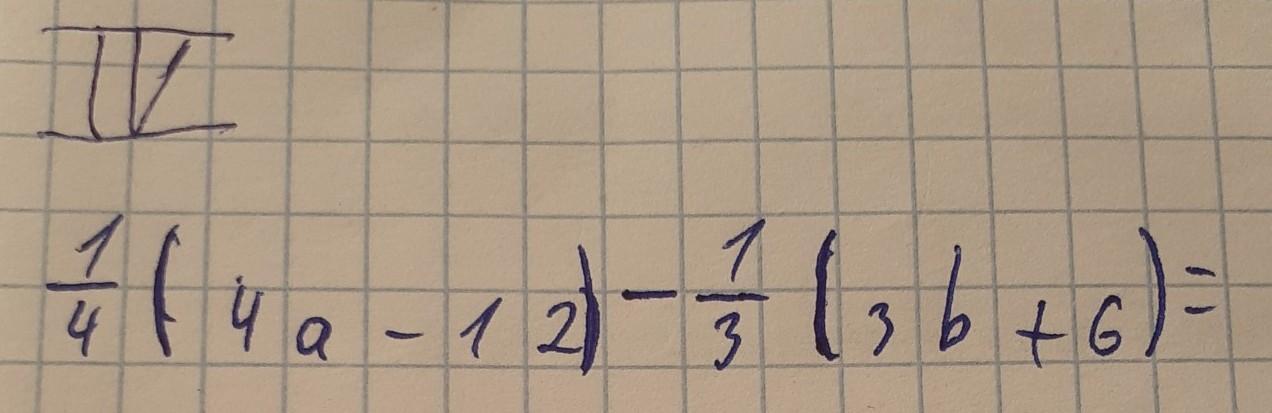 IV
1/4 (4a - 12) - 1/3 (3b + 6) =